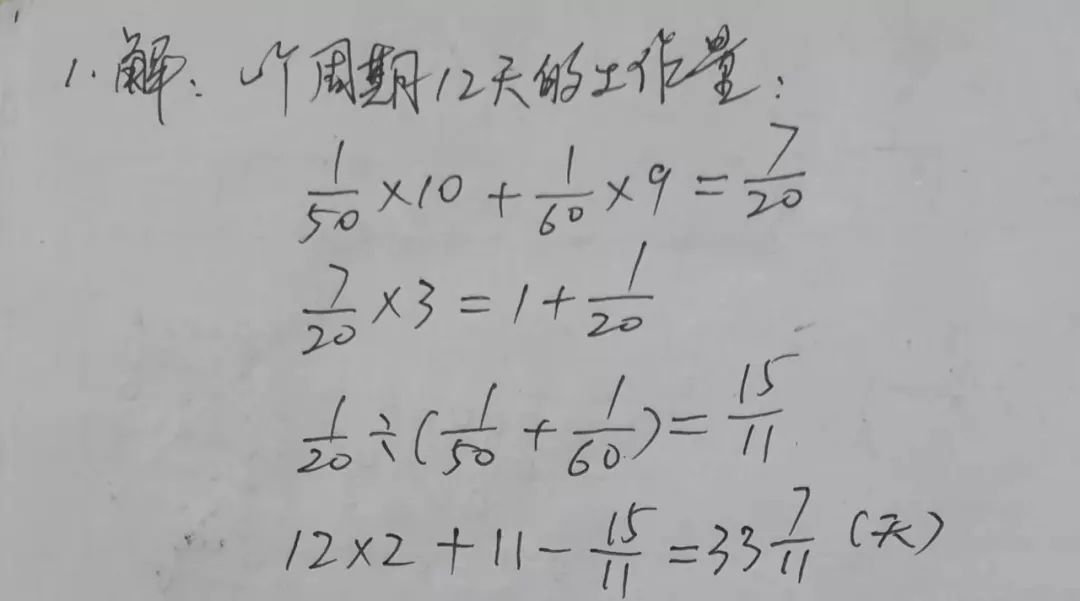 1. 解: 1个周期12天的工作量:
1/50 × 10 + 1/60 × 9 = 7/20
7/20 × 3 = 1 + 1/20
1/20 ÷ (1/50 + 1/60) = 15/11
12×2 + 11 − 15/11 = 33 7/11 (天)